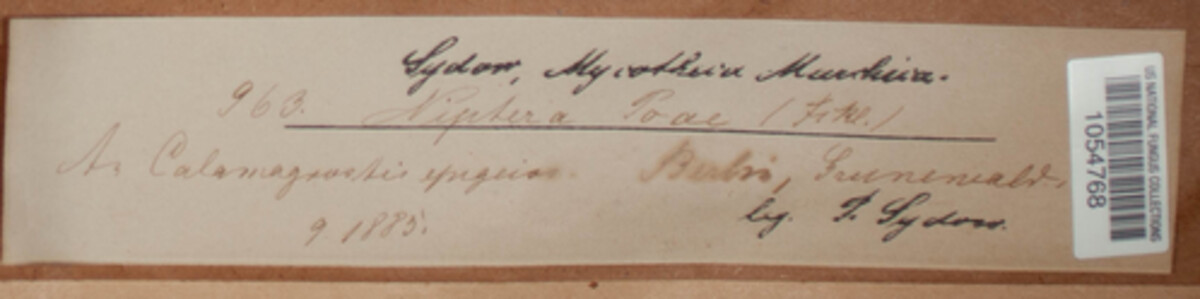 Sydow, Mycotheca Marchica.
963. Niptera Poae (Fckl.)
An Calamagrostis epigeios. Berlin, Grunewald,
9 1885. leg. P. Sydow.
US NATIONAL FUNGUS COLLECTIONS
1054768